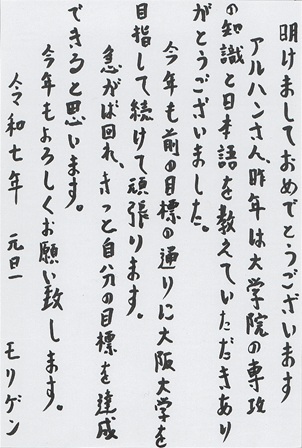 明けましておめでとうございます
アルハンさん、昨年は大学院の専攻
の知識と日本語を教えていただきあり
がとうございました。
今年も前の目標の通りに大阪大学を
目指して続けて頑張ります。
急がば回れ、きっと自分の目標を達成
できると思います。
今年もよろしくお願い致します。
令和七年 元旦
モリゲン